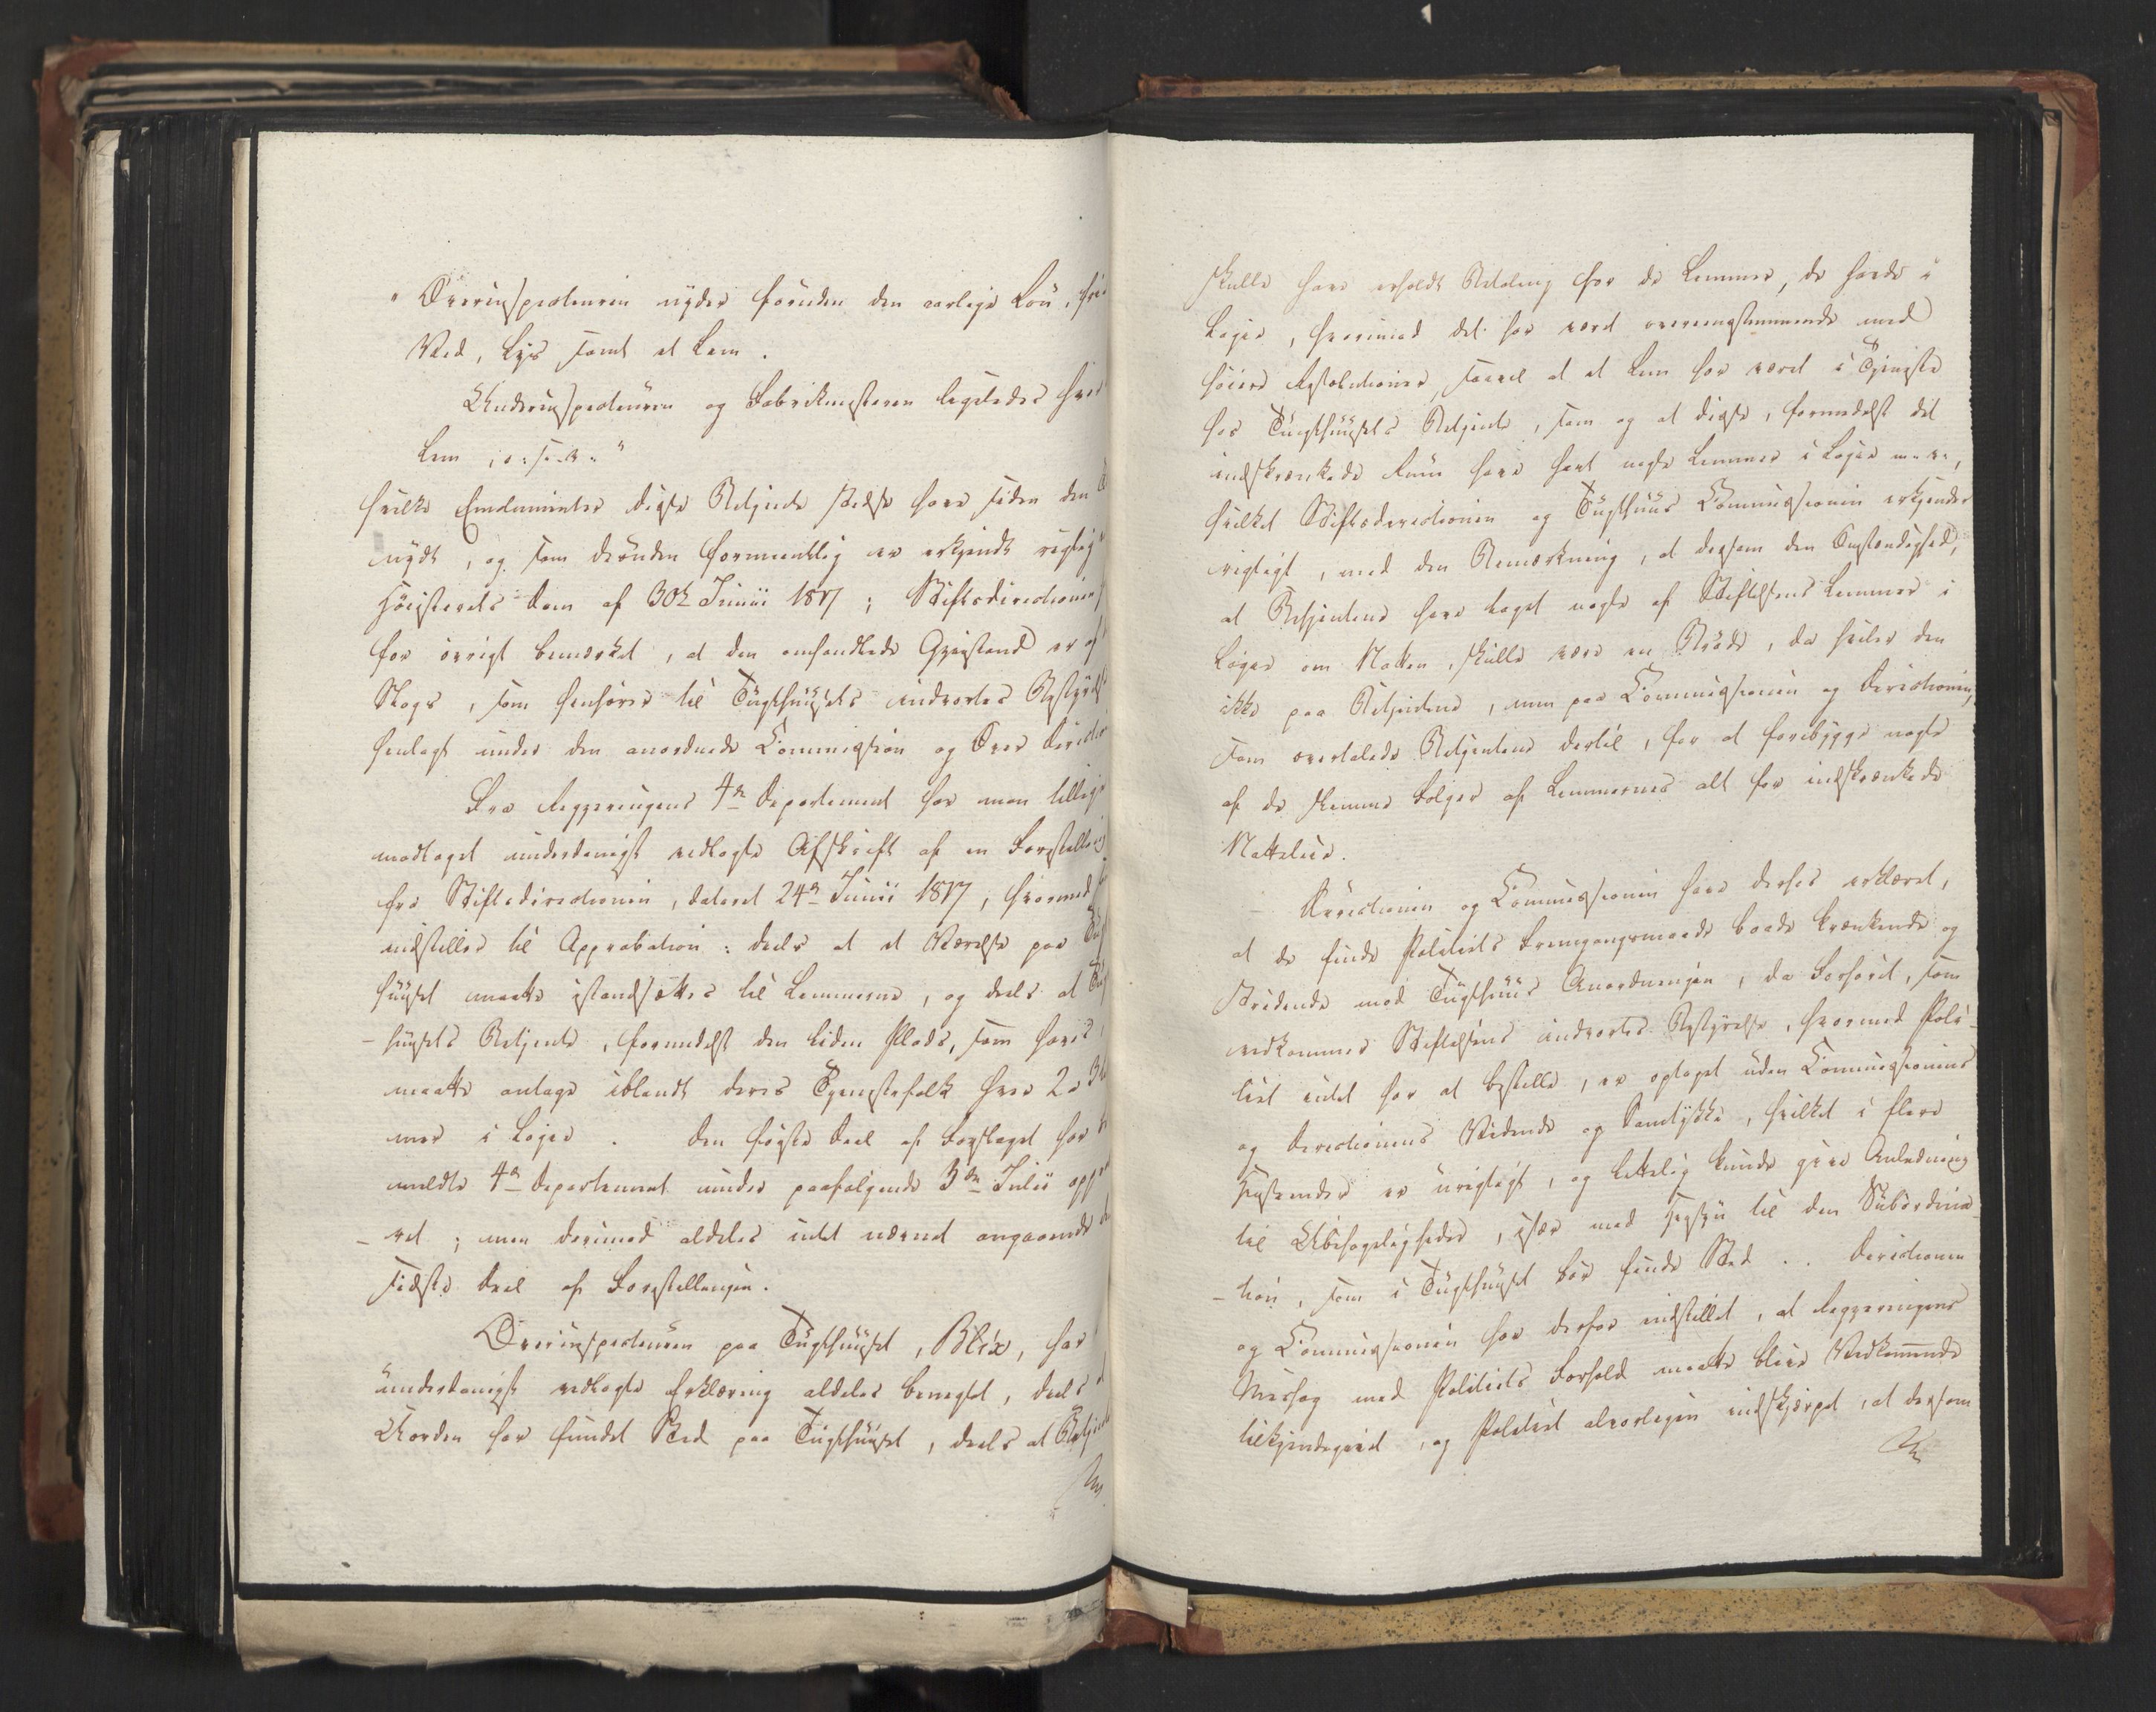 "Overinspecteuren nyder foruden den aarlige Lön, frie
Ved, Lys samt et Lem.
Underinspecteuren og Fabrikmesteren ligeledes hver
Lem, o. s. v."
hvilke Emolumenter disse Betjente stedse have siden den
nydt, og som desuden formeentlig er erkjendt rigtig
Höiesterets Dom af 30te Junii 1817; Stiftsdirectionen
for övrigt bemærket, at den omhandlede Gjenstand er af
Slags, som henhörer til Tugthuusets indvortes Bestyrelse
henlagt under den anordnede Commission og Over Directio
Fra Regjeringens 4de Departement har man tillige
modtaget underdanigst vedlagte Afskrift af en Forestilling
fra Stiftsdirectionen, dateret 24de Junii 1817, hvormed
indstilles til Approbation: deels at et Værelse paa Tugt
huuset maatte istandsættes til Lemmerne, og deels at Tugt
-huusets Betjente, formedelst den liden Plads, som haves,
maatte antage iblandt deres Tjenestefolk hver 2 a 3
mer i Logie. Den förste Deel af Forslaget har
meldte 4de Departement under paafölgende 3die Julii app
-ret; men derimod aldeles intet nævnt angaaende
sidste Deel af Forestillingen.
Overinspecteuren paa Tugthuuset, Blix, har
underdanigst vedlagte Erklæring aldeles benegtet, deels
Uorden har fundet Sted paa Tugthuuset, deels at Betjente
skulle have erholdt Betaling for de Lemmer, de havde i
Logie, hvorimod det har været overeensstemmende med
höiere Resolutioner, saavel at et Lem har været i Tjeneste
hos Tugthuusets Betjente, som og at disse, formedelst det
indskrænkede Rum have havt nogle Lemmer i Logie m. v.,
hvilket Stiftsdirectionen og Tugthuus Commissionen erkjender
rigtigt, med den Bemærkning, at dersom den Omstændighed,
at Betjentene have taget nogle af Stiftelsens Lemmer i
Logie om Natten, skulle være en Bröde, da hviler den
ikke paa Betjentene, men paa Commissionen og Directionen,
som overtalede Betjentene dertil, for at forebygge nogle
af de slemme Fölger af Lemmernes alt for indskrænkede
Natteleie.
Directionen og Commissionen have derhos erklæret,
at de finde Politiets Fremgangsmaade baade krænkende og
stridende mod Tugthuus Anordningen, da Forhöret, som
vedkommer Stiftelsens indvortes Bestyrelse, hvormed Poli-
tiet intet har at bestille, er optaget uden Commissionens
og Directionens Vidende og Samtykke, hvilket i flere
Henseender er urigtigt, og lettelig kunde give Anledning
til Ubehageligheder, især med Hensyn til den Subordina-
-tion, som i Tugthuuset bör finde Sted. Directionen
og Commissionen har derfor indstillet, at Regjeringens
Mishag med Politiets Forhold maatte blive Vedkommende
tilkjendegivet, og Politiet alvorligen indskjærpet, at dersom